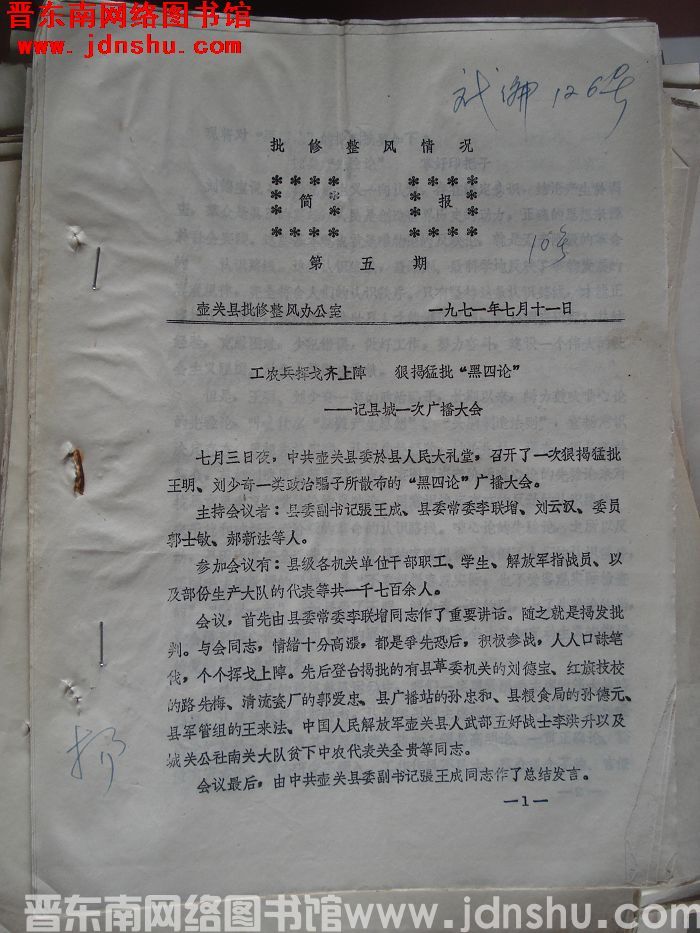 晋东南网络图书馆
www.jdnshu.com
126号
批修整风情况
简报
10号
第五期
壶关县批修整风办公室 一九七一年七月十一日
工农兵挥戈齐上阵 狠揭猛批“黑四论”
——记县城一次广播大会
七月三日夜，中共壶关县委於县人民大礼堂，召开了一次狠揭猛批
王明、刘少奇一类政治骗子所散布的“黑四论”广播大会。
主持会议者：县委副书记張王成、县委常委李联增、刘云汉、委员
郭士敏、郝新法等人。
参加会议有：县级各机关单位干部职工、学生、解放军指战员、以
及部份生产大队的代表等共一千七百余人。
会议，首先由县委常委李联增同志作了重要讲话。随之就是揭发批
判。与会同志，情緒十分高漲，都是爭先恐后，积极参战，人人口誅笔
伐，个个挥戈上陣。先后登台揭批的有县革委机关的刘德宝、红旗技校
的路先梅、清流瓷厂的郭爱忠、县广播站的孙忠和、县粮食局的孙德元、
县军管组的王来法、中国人民解放军壶关县人武部五好战士李洪升以及
城关公社南关大队贫下中农代表关全贵等同志。
会议最后，由中共壶关县委副书记張王成同志作了总结发言。
—1—
晋东南网络图书馆www.jdnshu.com